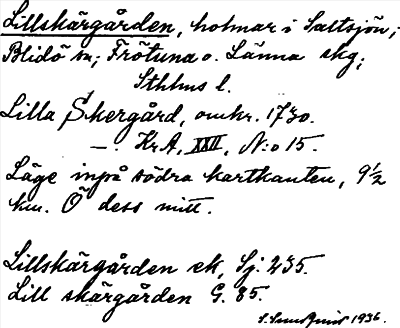 Lillskärgården, holmar i Saltsjön,;
Blidö sn; Frötuna o. Länna skg;
Sthlms l.
Lilla Skergård, omkr. 1730.
— KrA, XXII, N:o 15.
Läge inpå södra kartkanten, 9½
km. Ö dess mitt.
Lillskärgården ek, Sj. 235.
Lill skärgården G. 85.
1936.